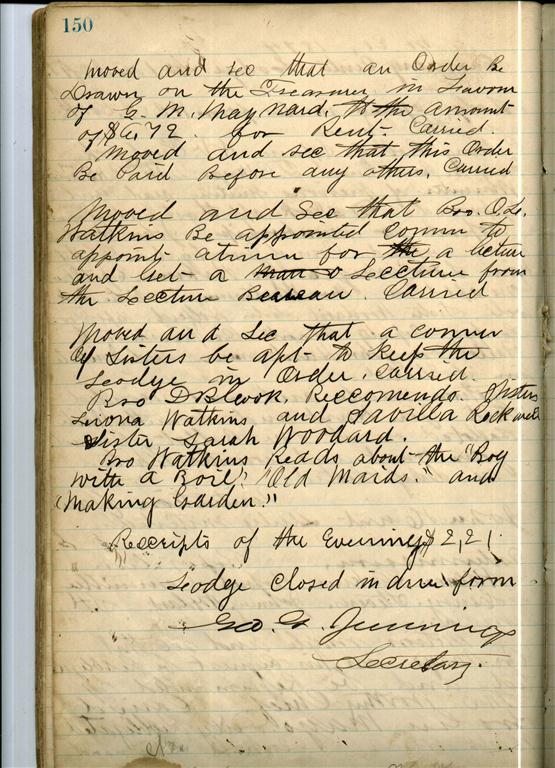 150
Moved and sec that an Order Be
Drawn on the Treasurer in favor
of G. M. Maynard, to the amount
of $6.72 for Rent. Carried.
Moved and sec that this Order
Be Paid Before any others, Carried
Moved and Sec that Bro. O.L.
Watkins Be appointed comm to
appoint a time for the a lecture
and Get a Lecture from
the Lecture Beaeau. Carried
Moved and Sec that a comm
of Sisters be apt to keep the
Lodge in Order, Carried.
Bro D B Cook, Reccomends Sisters
Watkins and Savilla Rock and
Sister Sarah Woodard.
Bro Watkins Reads about the "Boy
with a Boil." "Old Maids." and
"Making Garden."
Receipts of the Evening $2,21
Lodge Closed in due form
Geo. G. Jennings
Secretary.